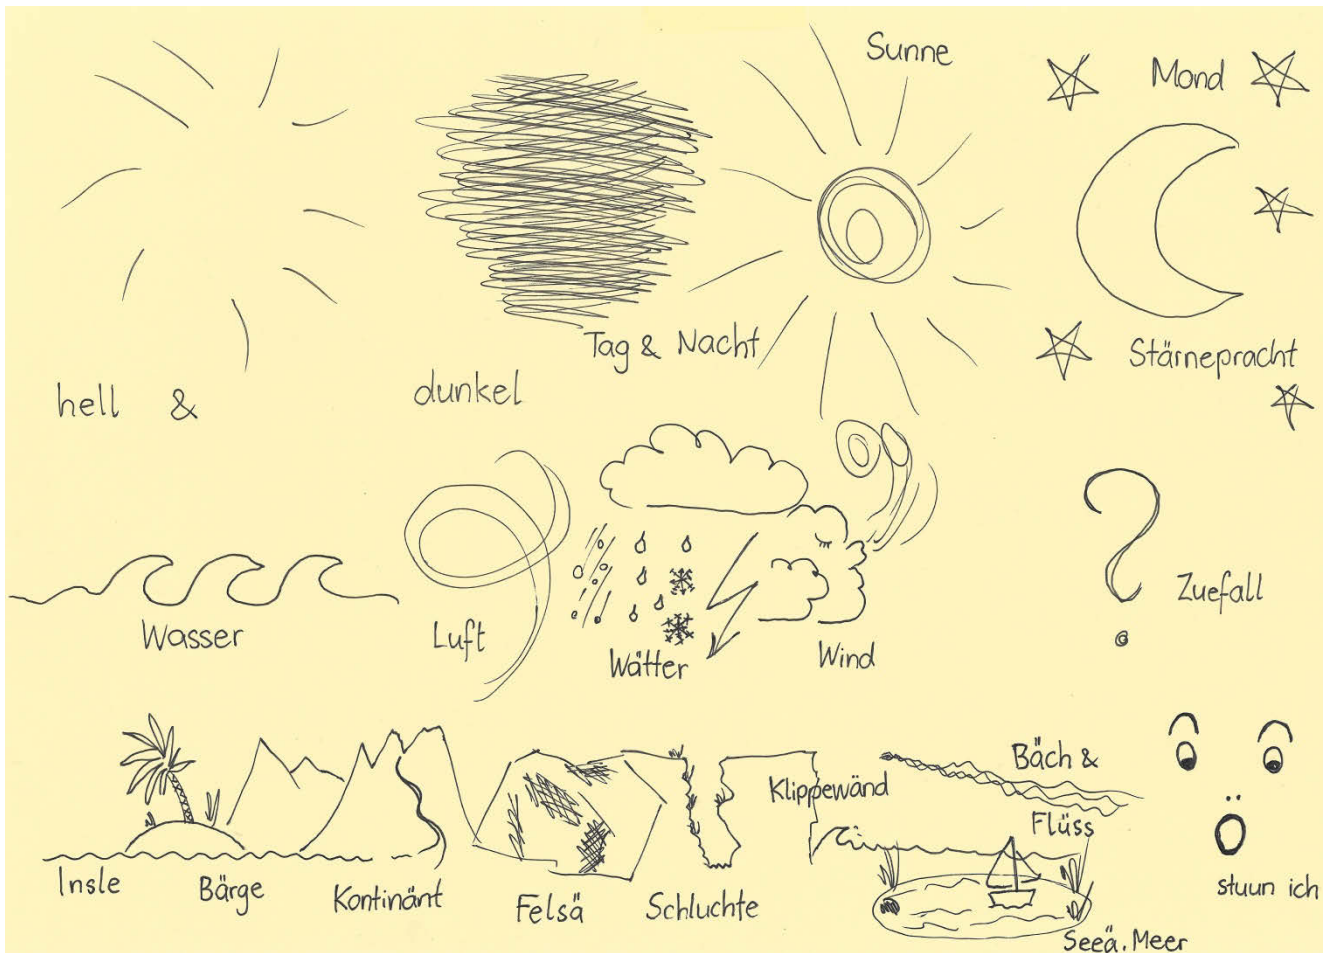 Sunne
Mond
Tag & Nacht
Stärnepracht
hell & dunkel
Wasser
Luft
Wätter
Wind
Zuefall
Insle
Bärge
Kontinänt
Felsä
Schluchte
Klippewänd
Bäch &
Flüss
Seeä. Meer
ö
stuun ich